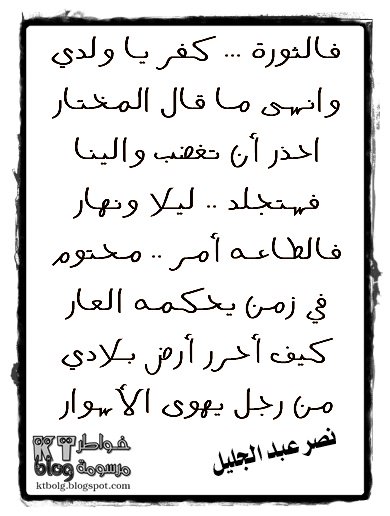 فالثورة ... كفر يا ولدي
وانهى ما قال المختار
احذر أن تغضب والينا
فهتجلد .. ليلا ونهار
فالطاعه أمر .. محتوم
في زمن يحكمه العار
كيف أحرر أرض بلادي
من رجل يهوى الأسوار
نصر عبد الجليل
خواطر KT
مرسومة blog
ktbolg.blogspot.com